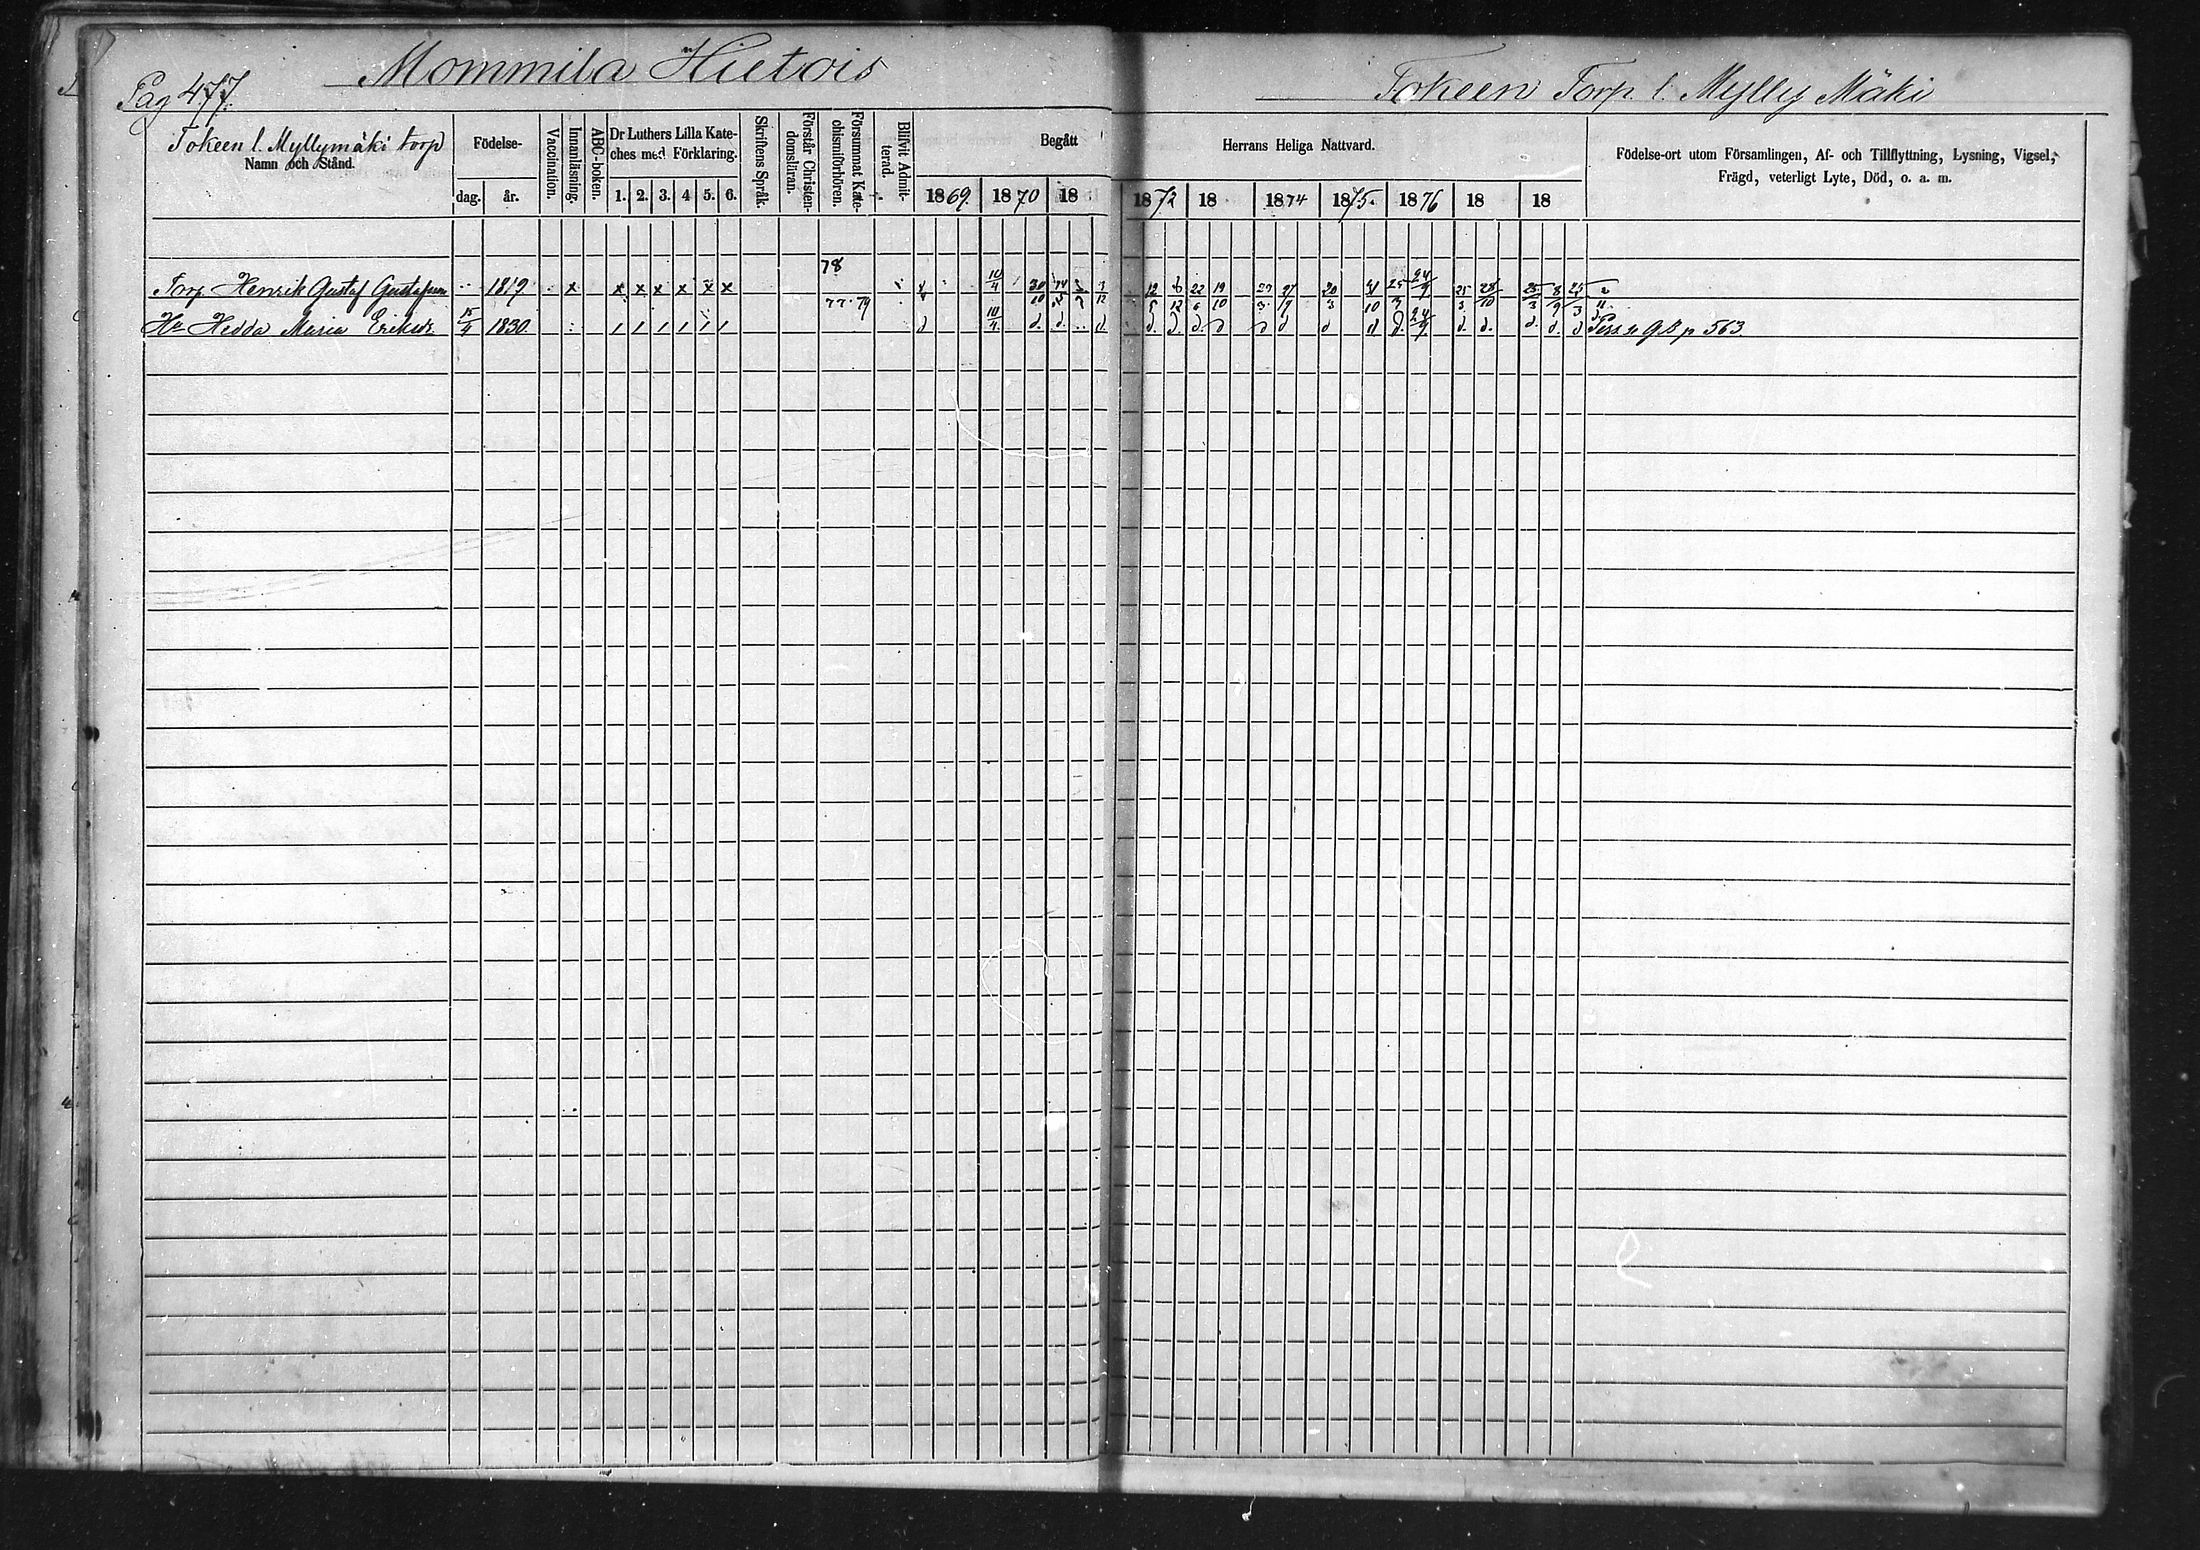 Pag 477. Mommila Hietois
Tokeen Torp l. Mylly Mäki
Tokeen l. Myllymäki torp
Namn och Stånd.
Födelse-
dag. år.
Vaccination.
Innanläsning.
ABC-boken.
Dr Luthers Lilla Kate-
ches med Förklaring.
1. 2. 3. 4 5. 6.
Skriftens Språk.
Förstår Christen-
domsläran.
Försummat Kate-
chismiförhören.
Blifvit Admit-
terad.
Begått
1869. 1870 18
Herrans Heliga Nattvard.
1872 18 1874 1875. 1876 18 18
Födelse-ort utom Församlingen, Af- och Tillflyttning, Lysning, Vigsel,
Frägd, veterligt Lyte, Död, o. a. m.
78
Torp. Henrik Gustaf Gustafsson 1819. x x x x x x x 10/4 30/10 12/5 22/6 19/10 20/3 21/10 25/3 24/9 25/3 28/10 25/3 8/9 24/3
77. 79
Hu Hedda Maria Eriksdr 15/4 1830. / / / / / / d 10/4 d. d. d d. d. d. d d d d d d. 24/9 d. d. d. d. d 563.